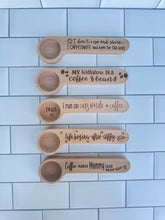 I don't rise and shine
I CAFFEINATE and hope for the best
MY BLOODTYPE IS A
coffee bean!
I run on cuss words + coffee
Life begins after coffee
Coffee makes MOMMY less